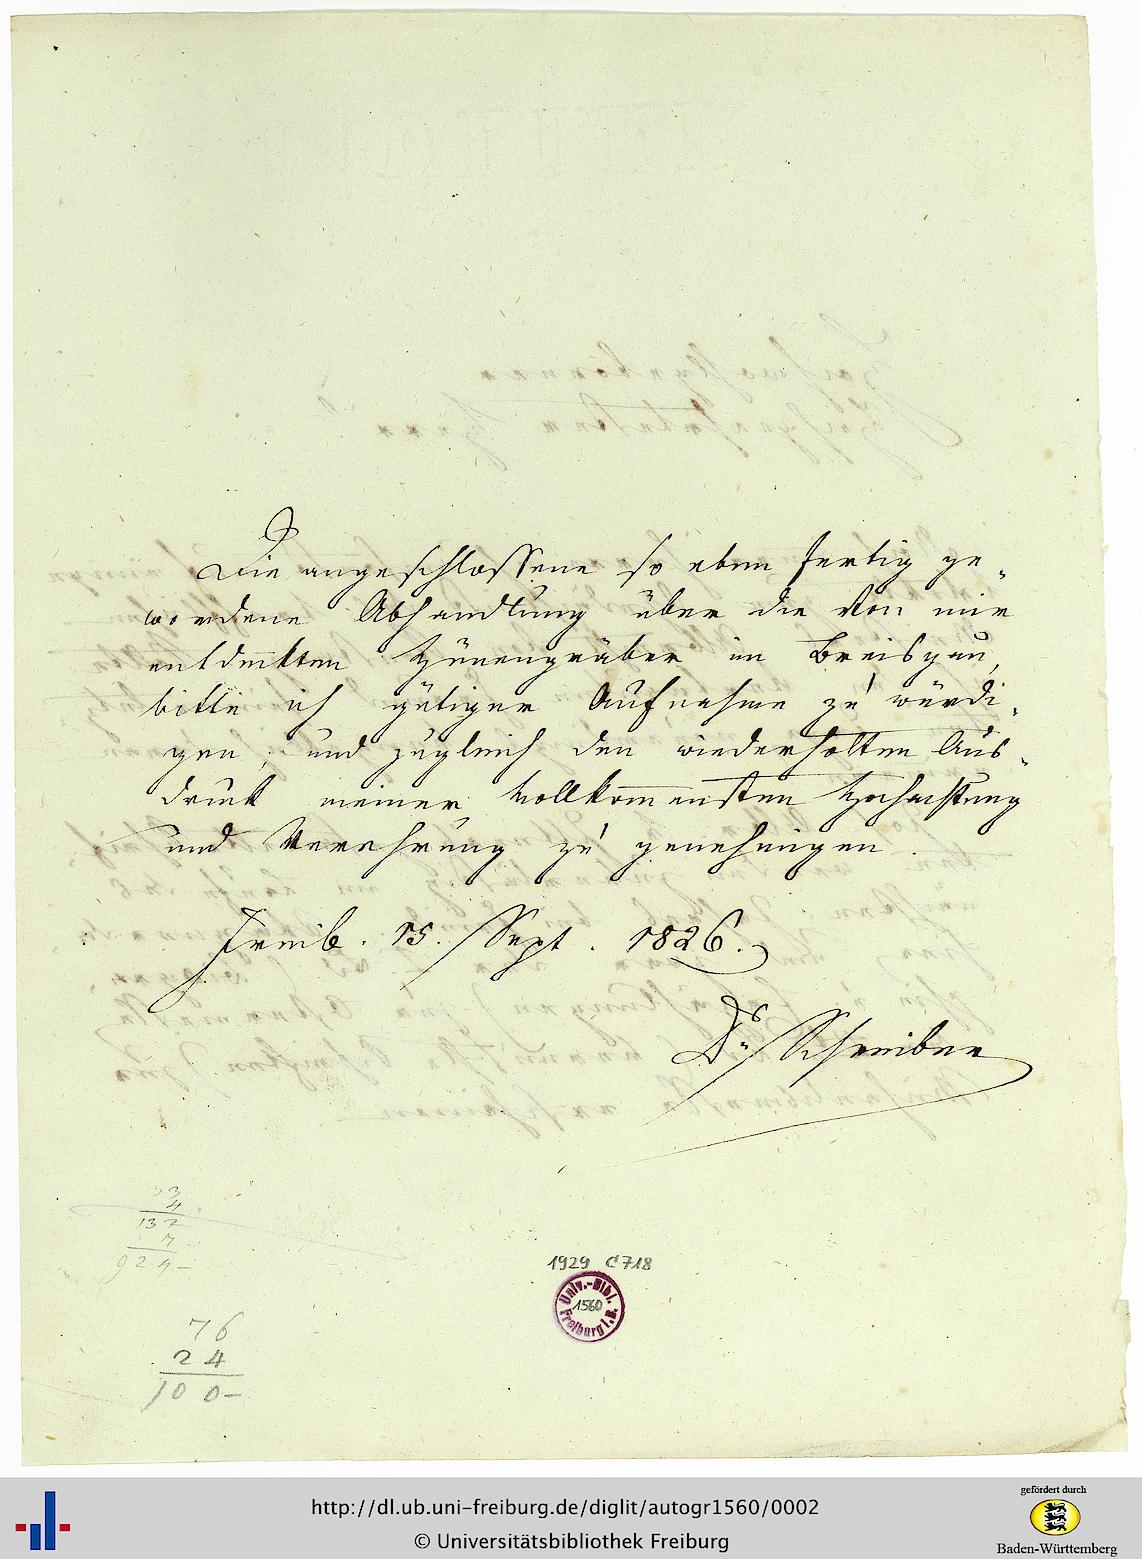 Die angeschlossene so eben fertig ge-
wordene Abhandlung über die von mir
entdeckten Hünengräber im Breisgau,
bitte ich gütiger Aufnahme zu würdi-
gen, und zugleich den wiederholten Aus-
druck meiner vollkommensten Hochachtung
und Verehrung zu genehmigen.
Freib. 15. Sept. 1826.
Dr Schreiber
33
4
132
7
924-
1929 C 718
Univ.-Bibl.
1560
Freiburg i.B.
76
24
100-
http://dl.ub.uni-freiburg.de/diglit/autogr1560/0002
© Universitätsbibliothek Freiburg
gefördert durch
Baden-Württemberg